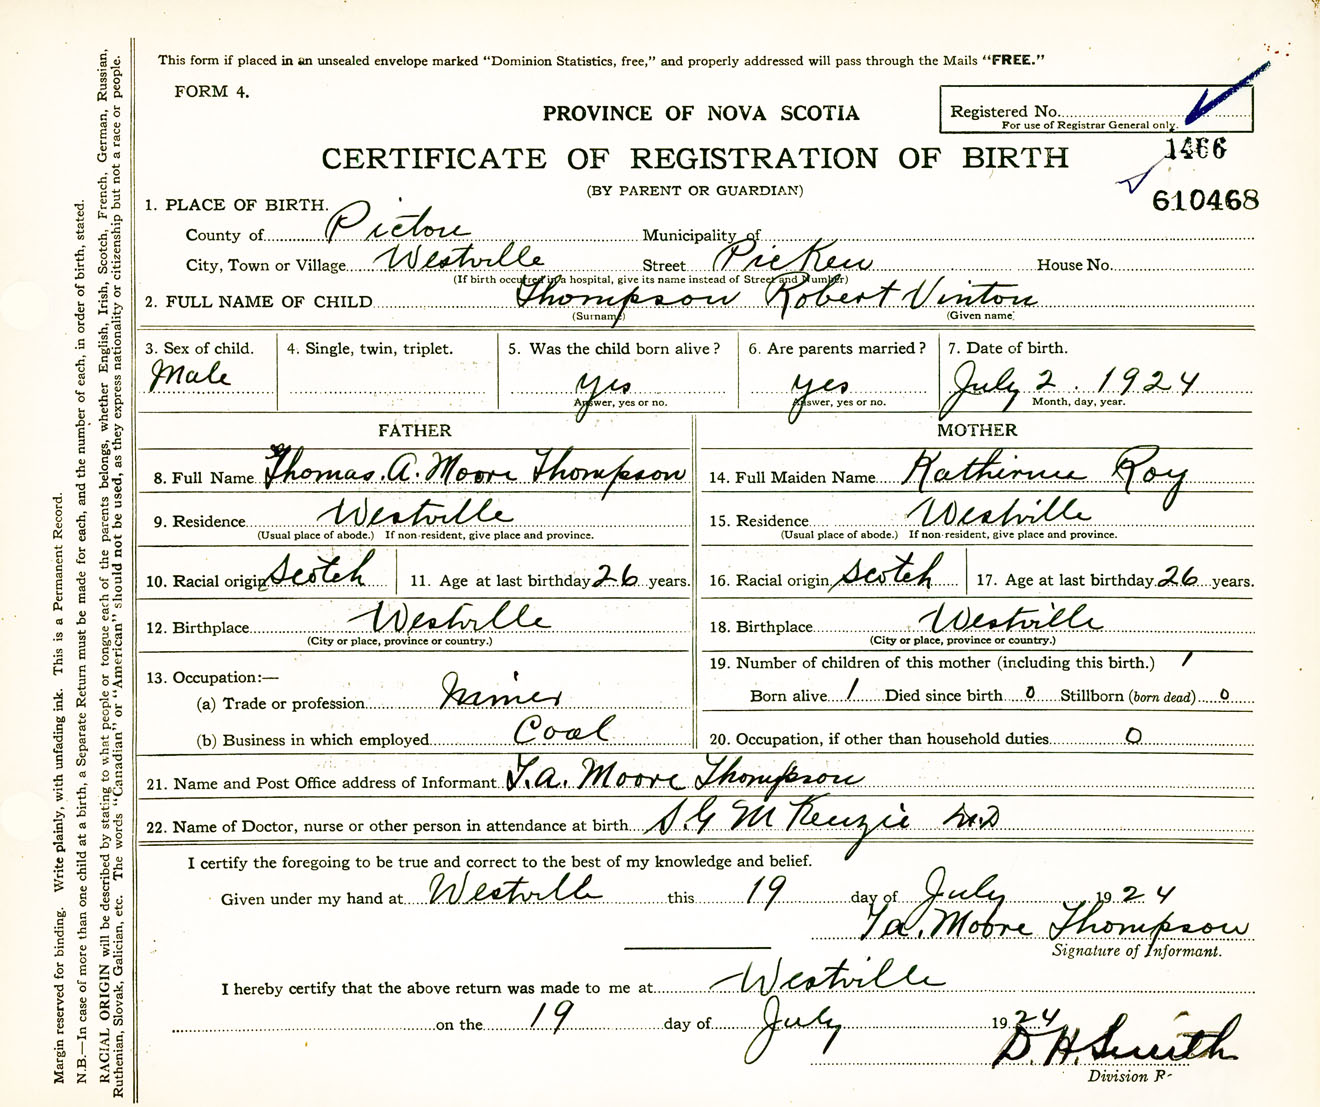 This form if placed in an unsealed envelope marked "Dominion Statistics, free," and properly addressed will pass through the Mails "FREE."
FORM 4.
PROVINCE OF NOVA SCOTIA
Registered No.
For use of Registrar General only.
CERTIFICATE OF REGISTRATION OF BIRTH
1466
(BY PARENT OR GUARDIAN)
610468
1. PLACE OF BIRTH.
County of Pictou Municipality of
City, Town or Village Westville Street Picken House No.
(If birth occurred in a hospital, give its name instead of Street and Number)
2. FULL NAME OF CHILD Thompson Robert Vinton
(Surname) (Given name)
3. Sex of child. 4. Single, twin, triplet. 5. Was the child born alive? 6. Are parents married? 7. Date of birth.
Male yes yes July 2. 1924
Answer, yes or no. Answer, yes or no. Month, day, year.
FATHER MOTHER
8. Full Name Thomas. A. Moore Thompson 14. Full Maiden Name Katherine Roy
9. Residence Westville 15. Residence Westville
(Usual place of abode.) If non-resident, give place and province. (Usual place of abode.) If non-resident, give place and province.
10. Racial origin Scotch 11. Age at last birthday 26 years. 16. Racial origin Scotch 17. Age at last birthday 26 years.
12. Birthplace Westville 18. Birthplace Westville
(City or place, province or country.) (City or place, province or country.)
13. Occupation:— 19. Number of children of this mother (including this birth.) 1
(a) Trade or profession Miner Born alive 1 Died since birth 0 Stillborn (born dead) 0
(b) Business in which employed Coal 20. Occupation, if other than household duties 0
21. Name and Post Office address of Informant T.A. Moore Thompson
22. Name of Doctor, nurse or other person in attendance at birth S.G McKenzie M.D
I certify the foregoing to be true and correct to the best of my knowledge and belief.
Given under my hand at Westville this 19 day of July 1924
T.A. Moore Thompson
Signature of Informant.
I hereby certify that the above return was made to me at Westville
on the 19 day of July 1924
D. H. Smith
Division R
Margin reserved for binding. Write plainly, with unfading ink. This is a Permanent Record.
N.B.—In case of more than one child at a birth, a Separate Return must be made for each, and the number of each, in order of birth, stated.
RACIAL ORIGIN will be described by stating to what people or tongue each of the parents belongs, whether English, Irish, Scotch, French, German, Russian,
Ruthenian, Slovak, Galician, etc. The words "Canadian" or "American" should not be used, as they express nationality or citizenship but not a race or people.